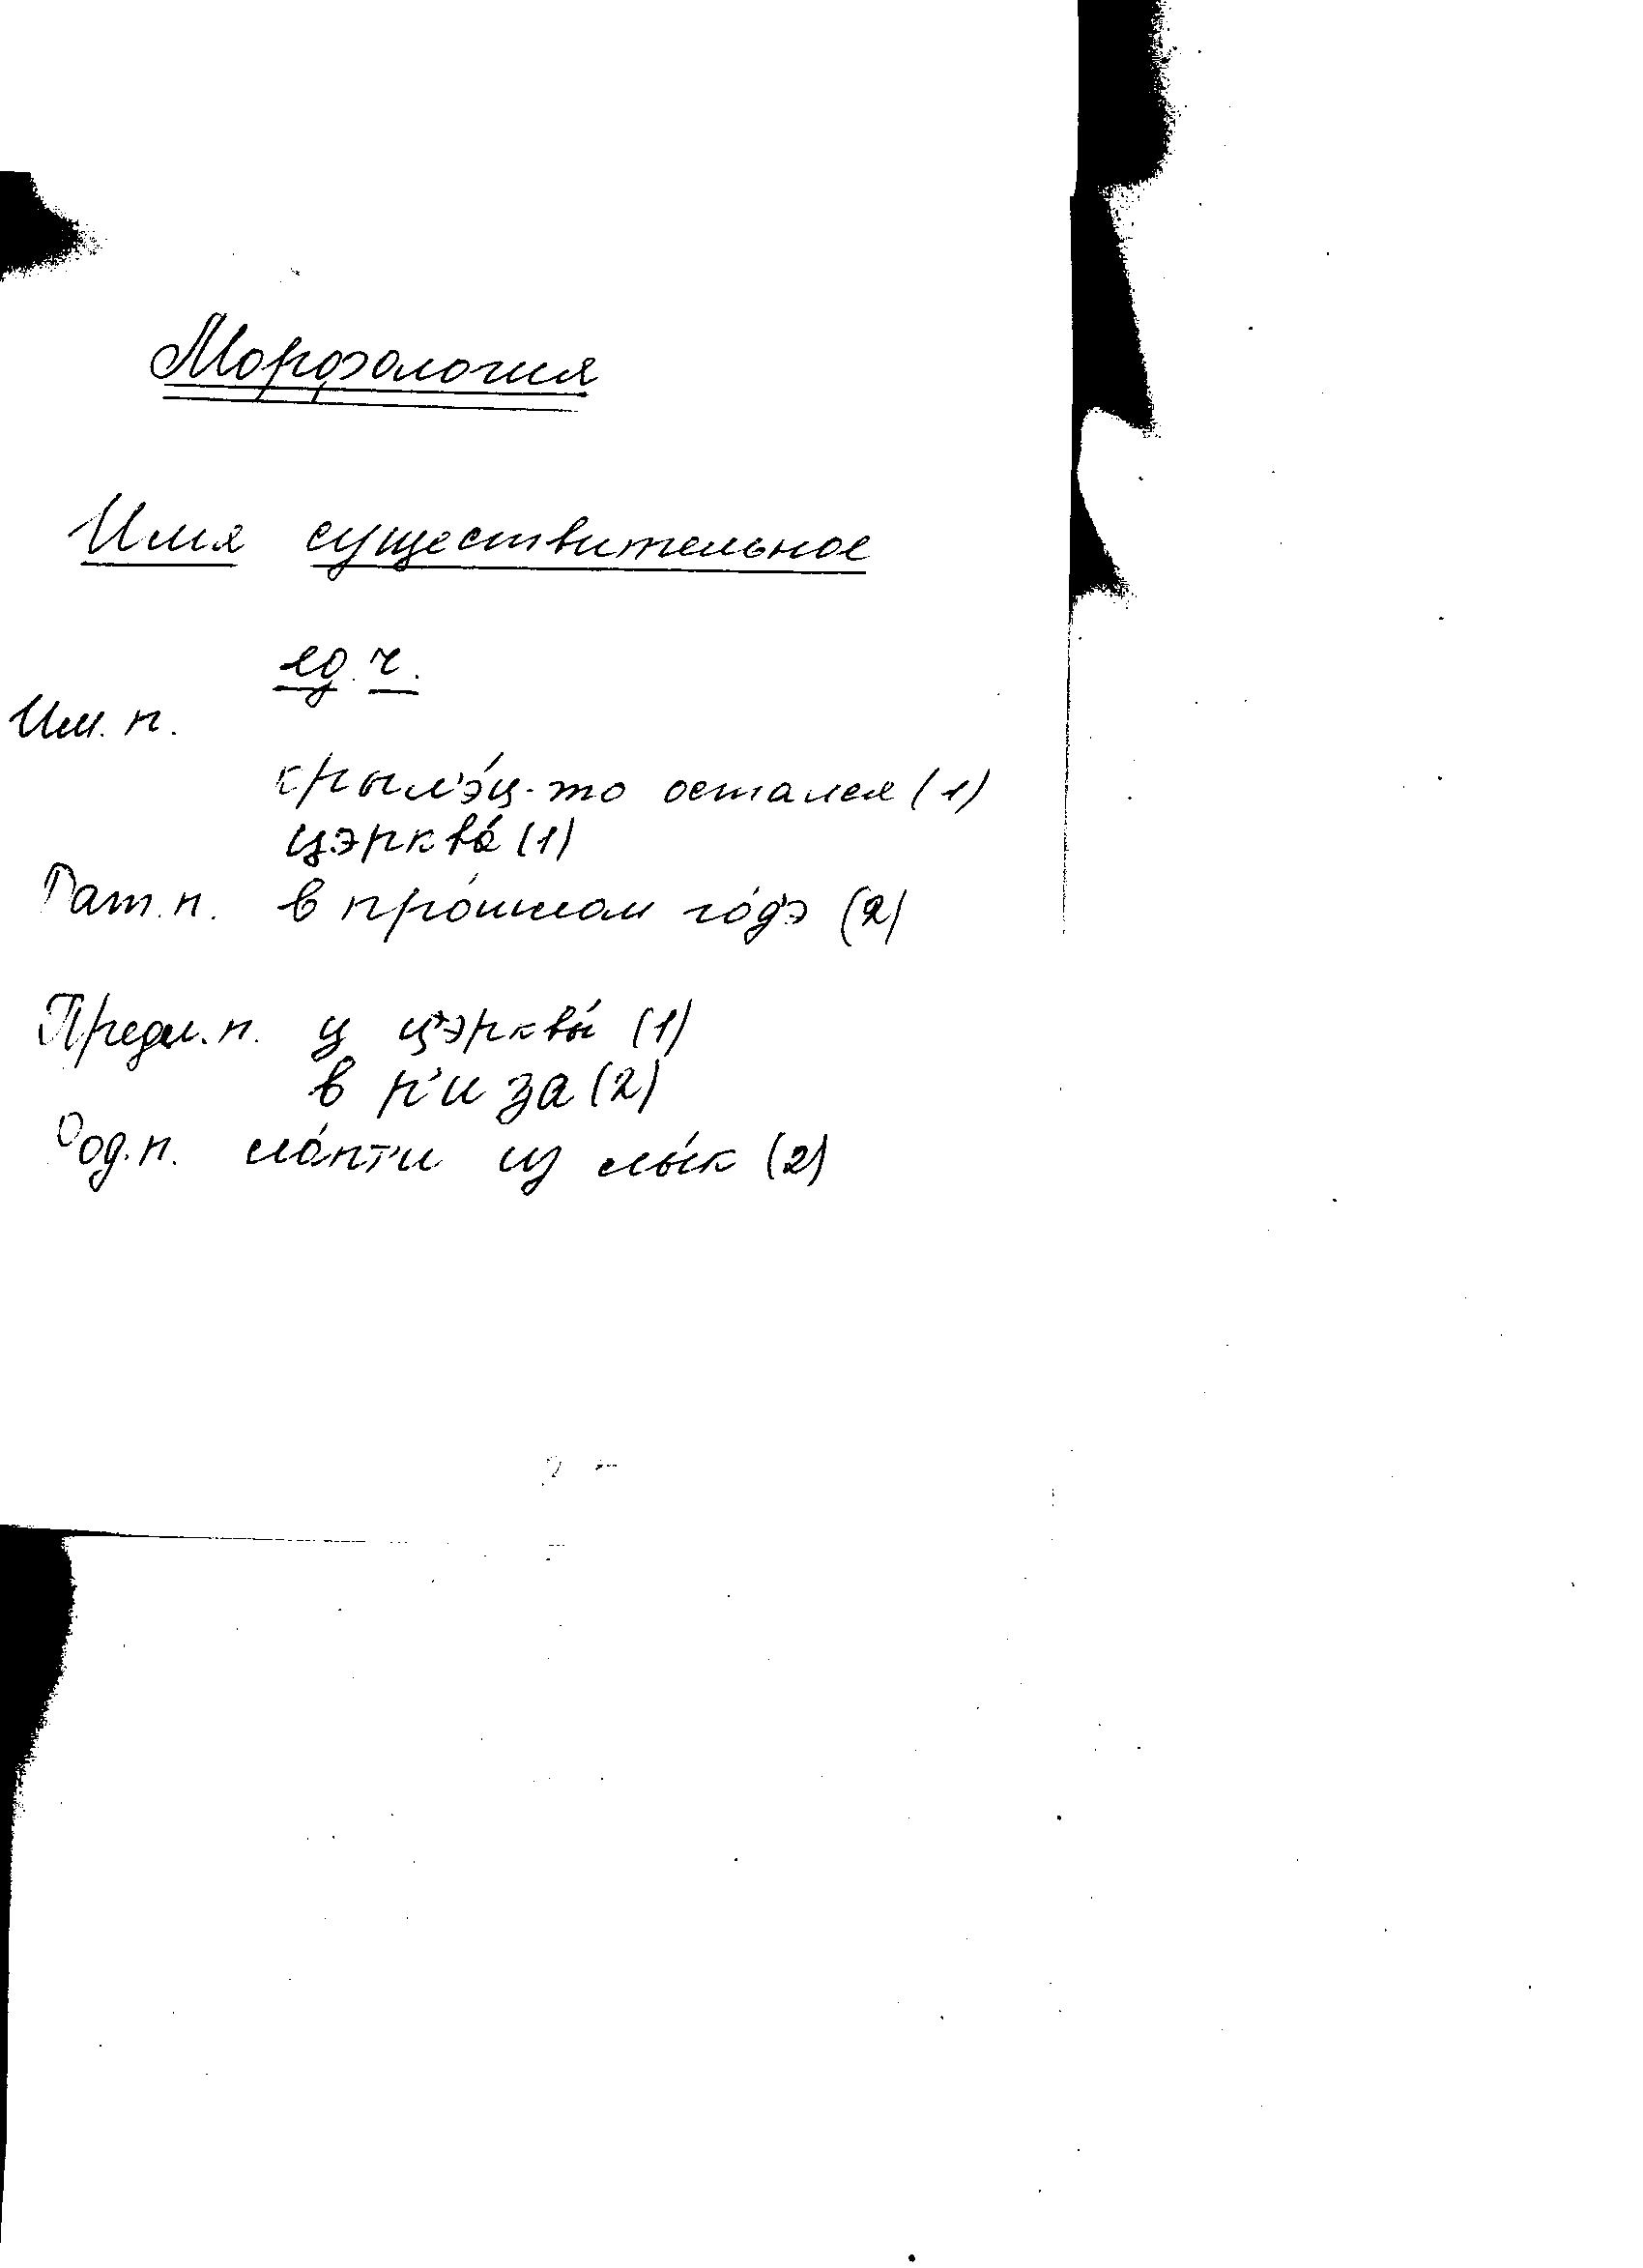 Морфология
Имя существительное
ед. ч.
Им. п.
крыл'э́ц-то остался (1)
цэрква́ (1)
Дат. п. в про́шлом го́д'э (2)
Предл. п. у цэрквы́ (1)
в р'и за (2)
Род. п. ла́пт'и из лы́к (2)